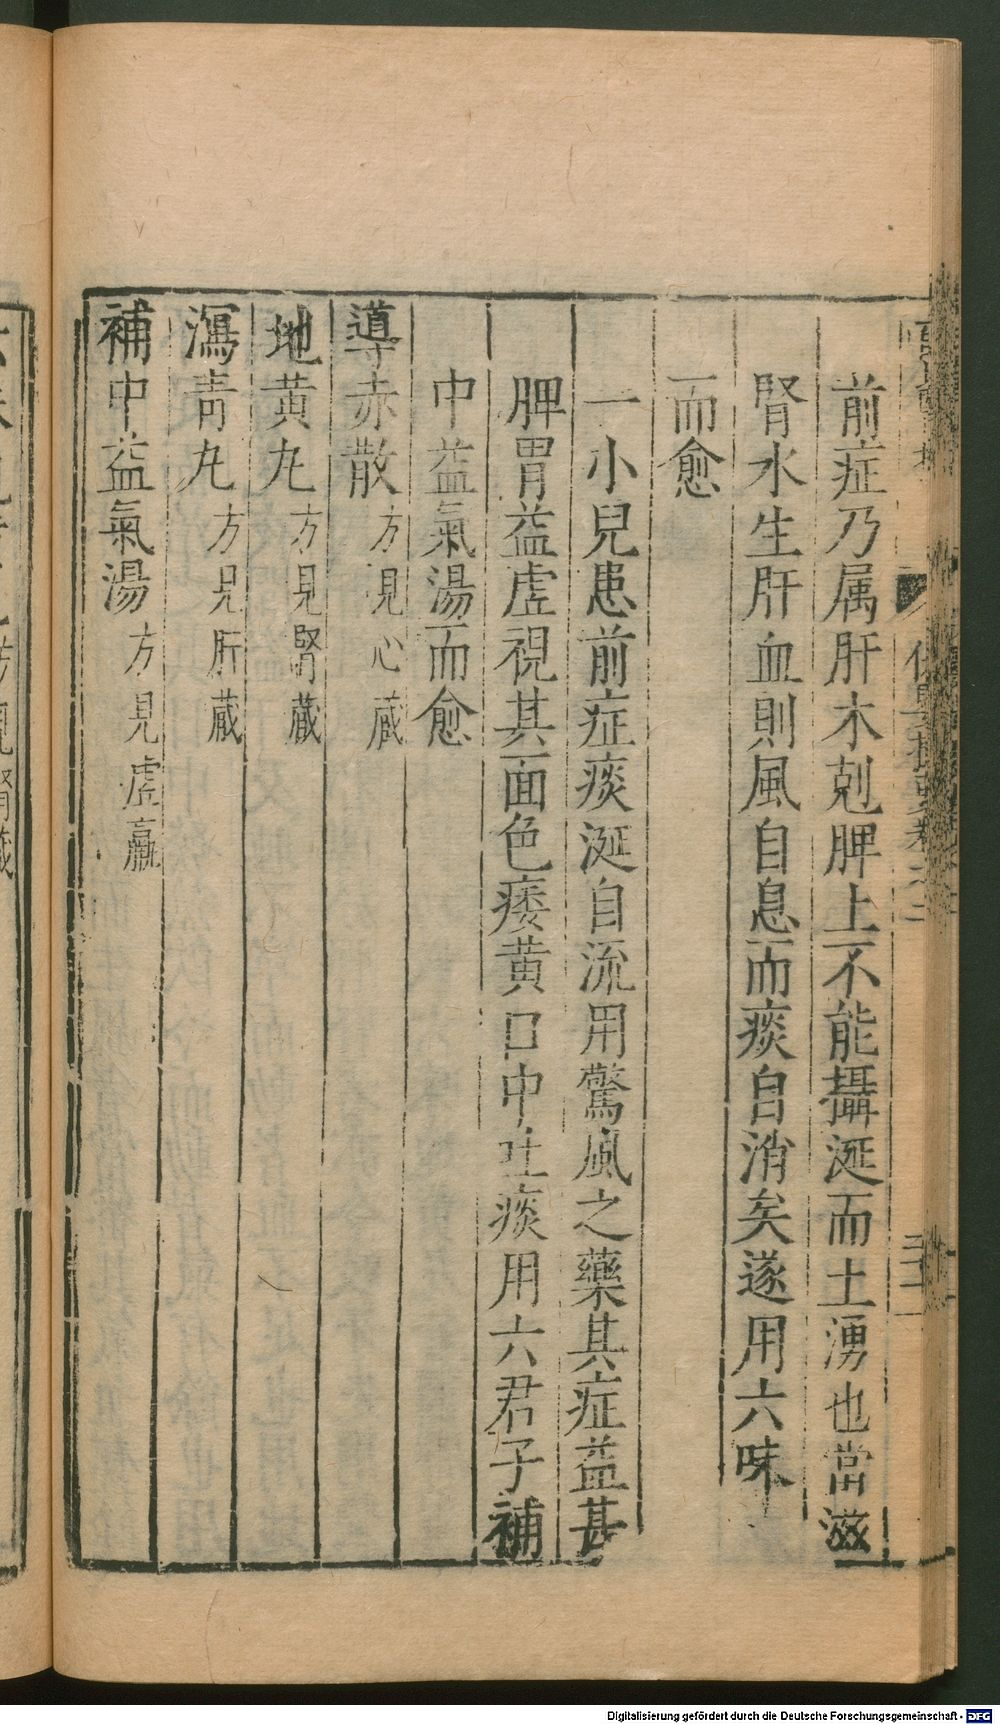 前症乃属肝木剋脾土不能攝涎而上湧也當滋
腎水生肝血則風自息而痰自消矣遂用六味
而愈
一小兒患前症痰涎自流用驚風之藥其症益甚
脾胃益虚視其面色痿黄口中吐痰用六君子補
中益氣湯而愈
導赤散方見心蔵
地黄丸方見腎蔵
瀉青丸方見肝蔵
補中益氣湯方見虚羸
Digitalisierung gefördert durch die Deutsche Forschungsgemeinschaft - DFG